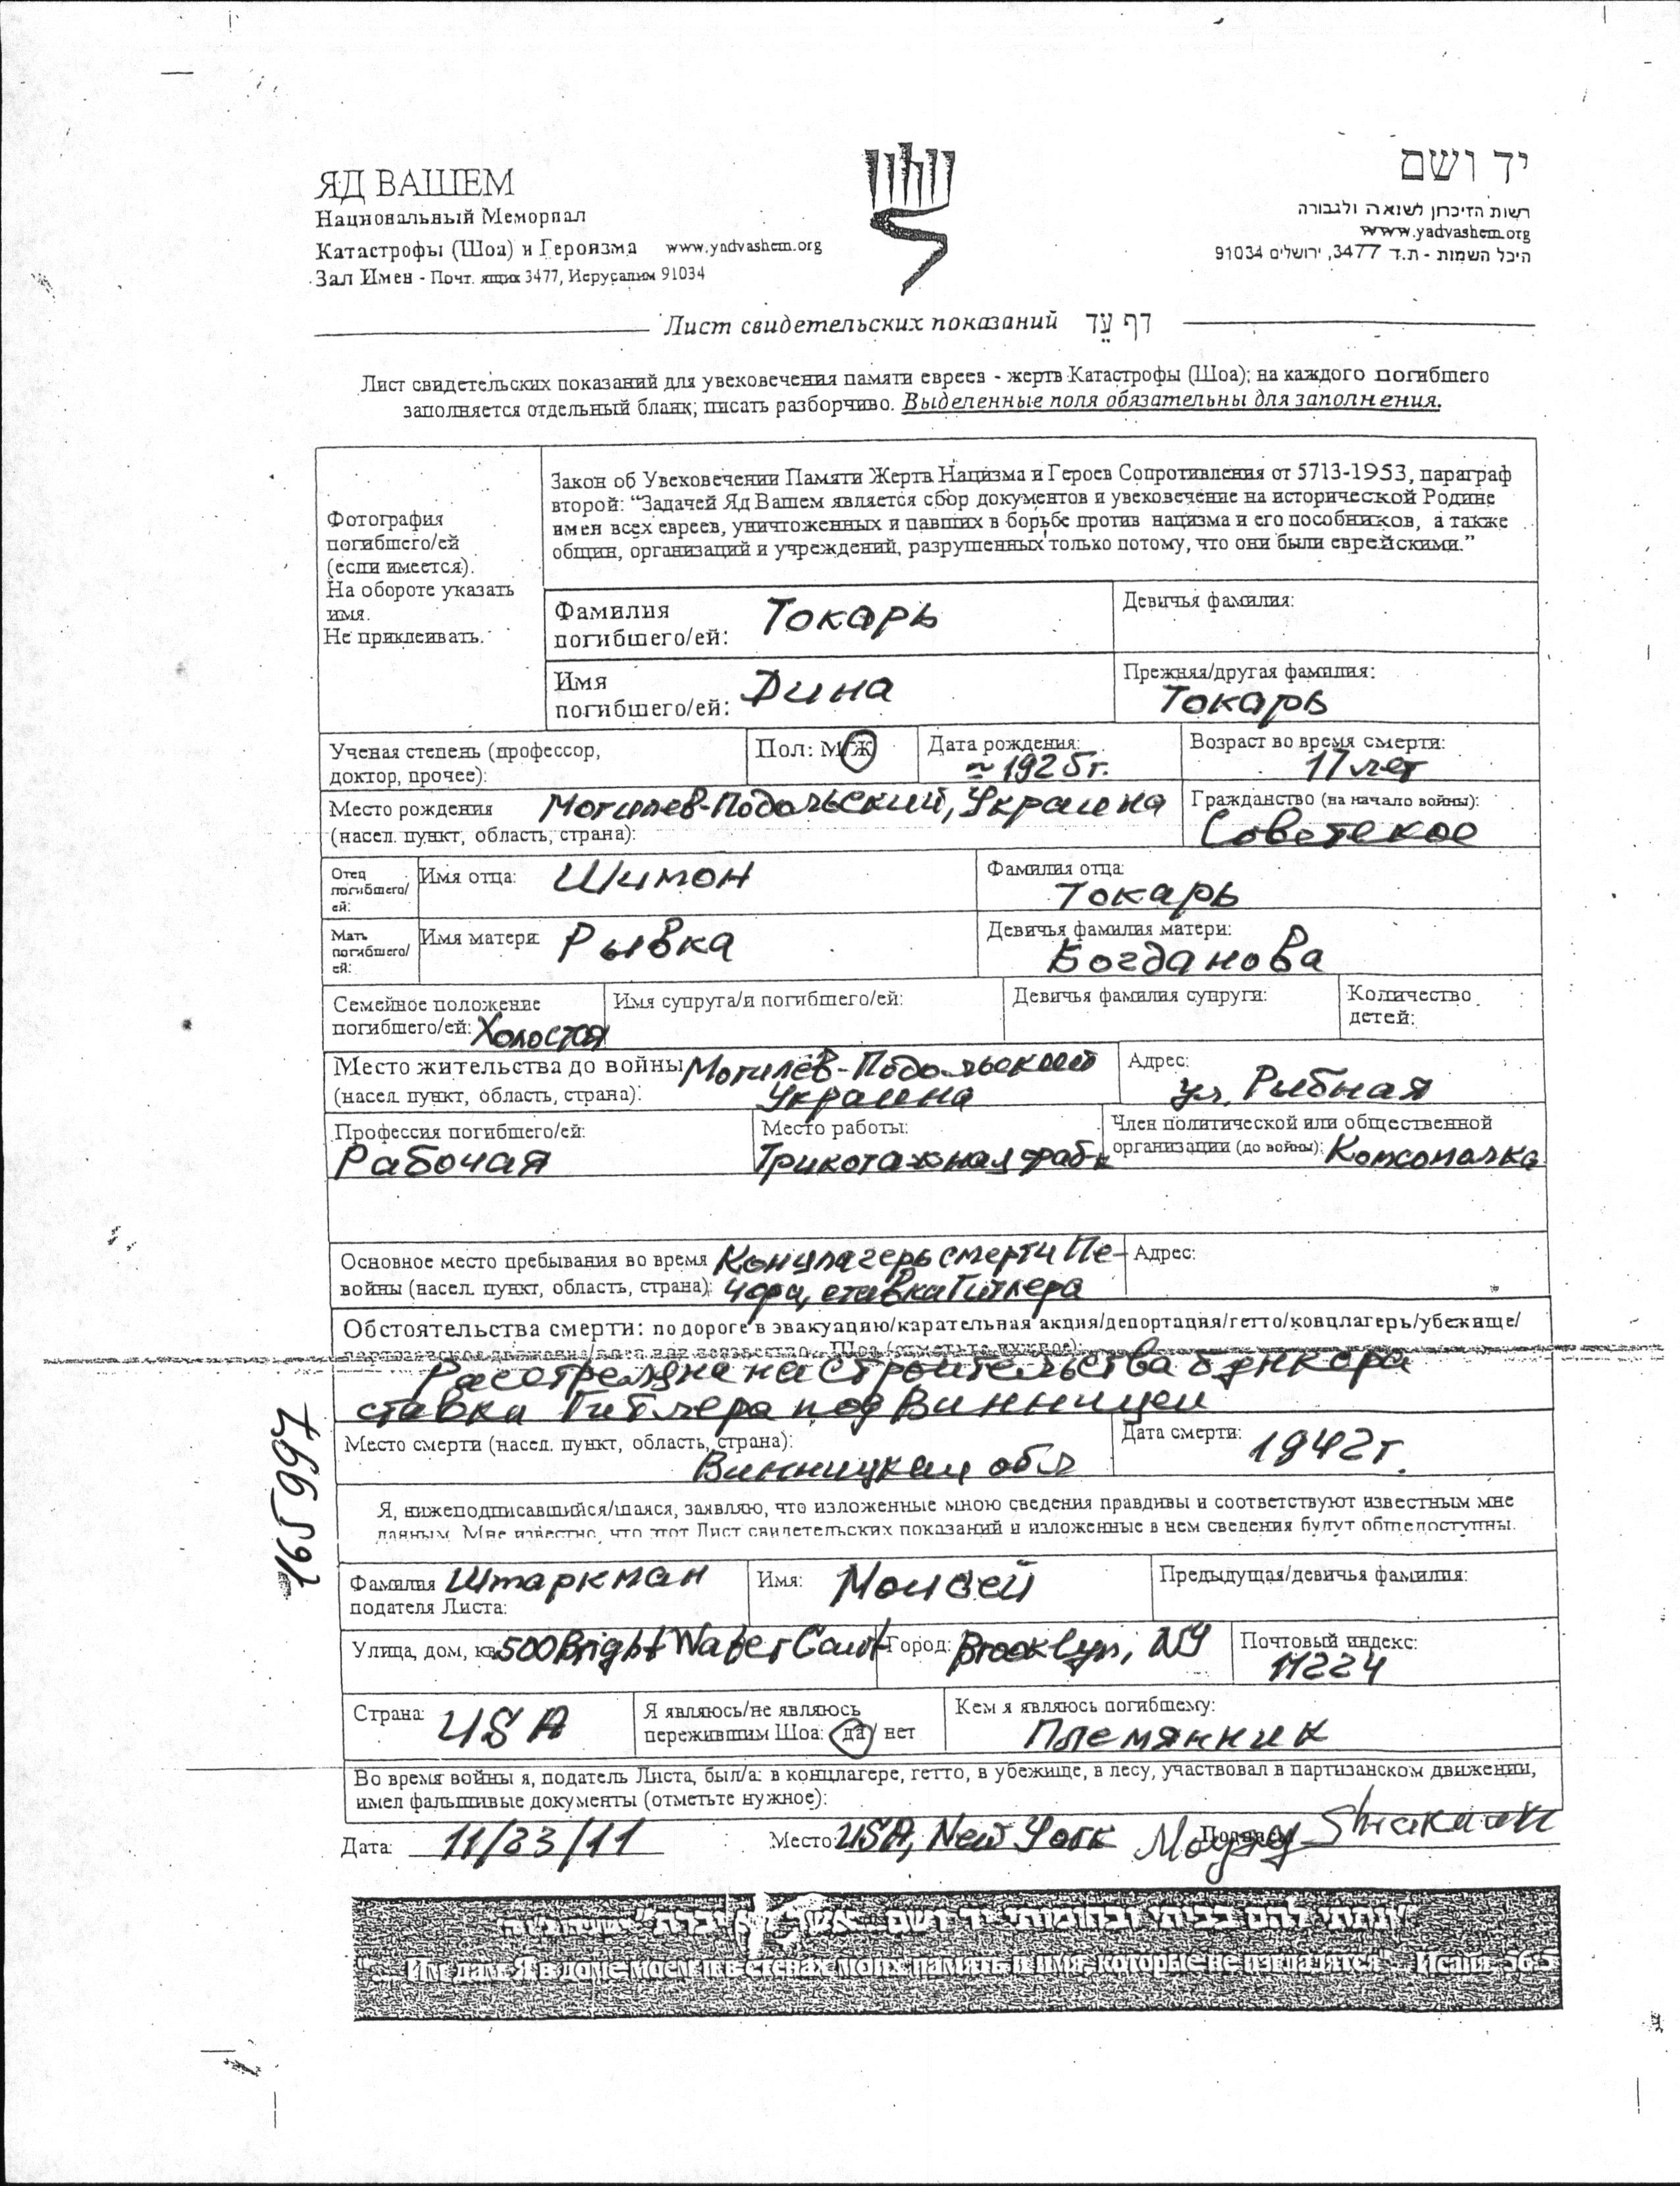 ЯД ВАШЕМ
Национальный Мемориал
Катастрофы (Шоа) и Героизма www.yadvashem.org
Зал Имен - Почт. ящик 3477, Иерусалим 91034
יד ושם
רשות הזיכרון לשואה ולגבורה
www.yadvashem.org
היכל השמות - ת.ד 3477, ירושלים 91034
Лист свидетельских показаний דף עֵד
Лист свидетельских показаний для увековечения памяти евреев - жертв Катастрофы (Шоа); на каждого погибшего
заполняется отдельный бланк; писать разборчиво. Выделенные поля обязательны для заполнения.
Фотография
погибшего/ей
(если имеется).
На обороте указать
имя.
Не приклеивать.
Закон об Увековечении Памяти Жертв Нацизма и Героев Сопротивления от 5713-1953, параграф
второй: “Задачей Яд Вашем является сбор документов и увековечение на исторической Родине
имен всех евреев, уничтоженных и павших в борьбе против нацизма и его пособников, а также
общин, организаций и учреждений, разрушенных только потому, что они были еврейскими.”
Фамилия погибшего/ей: Токарь
Девичья фамилия:
Имя погибшего/ей: Дина
Прежняя/другая фамилия: Токарь
Ученая степень (профессор, доктор, прочее):
Пол: М/Ж
Дата рождения: ≈ 1925г.
Возраст во время смерти: 17 лет
Место рождения (насел. пункт, область, страна): Могилев-Подольский, Украина
Гражданство (на начало войны): Советское
Отец погибшего/ей:
Имя отца: Шимон
Фамилия отца: Токарь
Мать погибшего/ей:
Имя матери: Рывка
Девичья фамилия матери: Богданова
Семейное положение погибшего/ей: Холостая
Имя супруга/и погибшего/ей:
Девичья фамилия супруги:
Количество детей:
Место жительства до войны (насел. пункт, область, страна): Могилёв-Подольский Украина
Адрес: ул. Рыбная
Профессия погибшего/ей: Рабочая
Место работы: Трикотажная фаб-к
Член политической или общественной организации (до войны): Комсомолка
Основное место пребывания во время войны (насел. пункт, область, страна): Концлагерь смерти Пе-
чора, ставка Гитлера
Адрес:
Обстоятельства смерти: по дороге в эвакуацию/карательная акция/депортация/гетто/концлагерь/убежище/
Расстреляна на строительства бункера
ставки Гитлера под Винницей
Место смерти (насел. пункт, область, страна): Винницкая обл
Дата смерти: 1942г.
165997
Я, нижеподписавшийся/шаяся, заявляю, что изложенные мною сведения правдивы и соответствуют известным мне
данным. Мне известно, что этот Лист свидетельских показаний и изложенные в нем сведения будут общедоступны.
Фамилия подателя Листа: Штаркман
Имя: Моисей
Предыдущая/девичья фамилия:
Улица, дом, кв. 500 Bright Water Court
Город: Brooklyn, NY
Почтовый индекс: 11224
Страна: USA
Я являюсь/не являюсь пережившим Шоа: да / нет
Кем я являюсь погибшему: Племянник
Во время войны я, податель Листа, был/а: в концлагере, гетто, в убежище, в лесу, участвовал в партизанском движении,
имел фальшивые документы (отметьте нужное):
Дата: 11/23/11 Место: USA, New York Подпись
"ונתתי להם בביתי ובחומותי יד ושם... אשר לא יכרת" ישעיהו נו, ה
"... Им дам Я в доме моем и в стенах моих память и имя, которые не изгладятся" Исаия 56:5